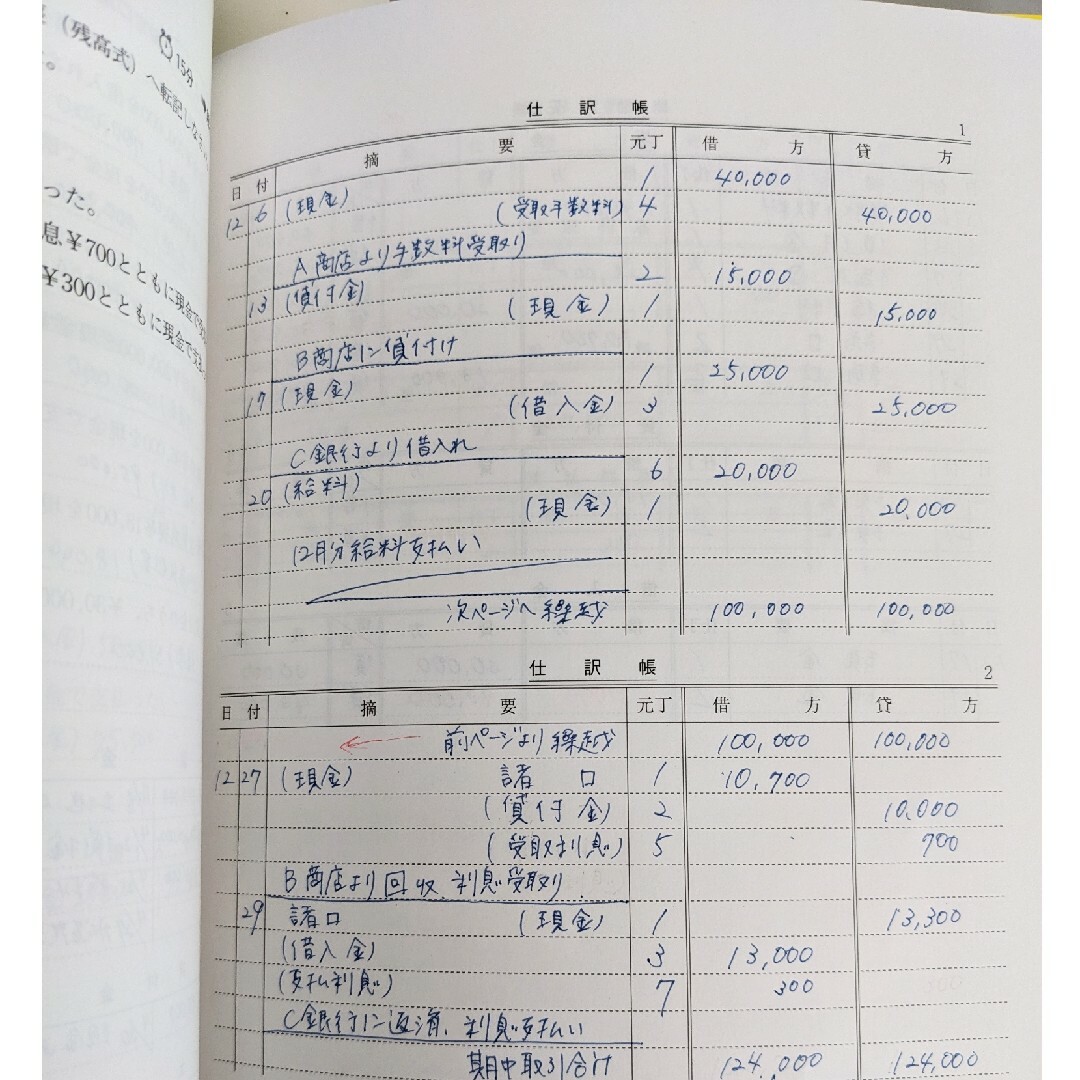 (残高式)へ転記しなさい
15分
った。
息¥700とともに現金で
¥300とともに現金で支
仕訳帳 1
日付 摘要 元丁 借方 貸方
12 6 (現金) 1 40,000
(受取手数料) 4 40,000
A商店より手数料受取り
13 (貸付金) 2 15,000
(現金) 1 15,000
B商店に貸付け
17 (現金) 1 25,000
(借入金) 3 25,000
C銀行より借入れ
20 (給料) 6 20,000
(現金) 1 20,000
12月分給料支払い
次ページへ繰越 100,000 100,000
仕訳帳 2
日付 摘要 元丁 借方 貸方
前ページより繰越 100,000 100,000
12 27 (現金) 諸口 1 10,700
(貸付金) 2 10,000
(受取利息) 5 700
B商店より回収、利息受取り
29 諸口 (現金) 1 13,300
(借入金) 3 13,000
(支払利息) 7 300
C銀行に返済、利息支払い
期中取引合計 124,000 124,000